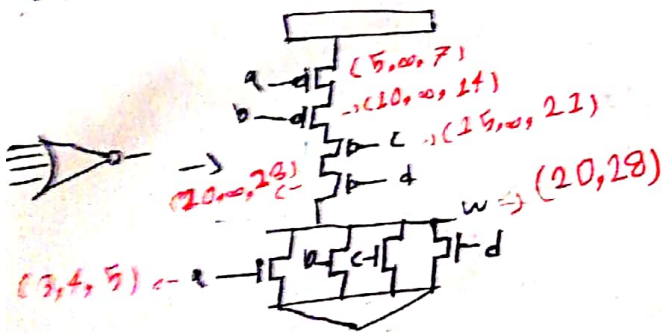 a (5,∞,7)
b →(10,∞,14)
c →(15,∞,21)
→ (20,∞,28) ← d
w ⇒ (20,28)
(3,4,5) ← a b c d